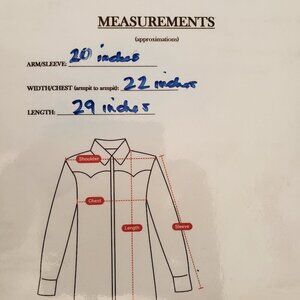 MEASUREMENTS
(approximations)
ARM/SLEEVE: 20 inches
WIDTH/CHEST (armpit to armpit): 22 inches
LENGTH: 29 inches
Shoulder
Chest
Length
Sleeve